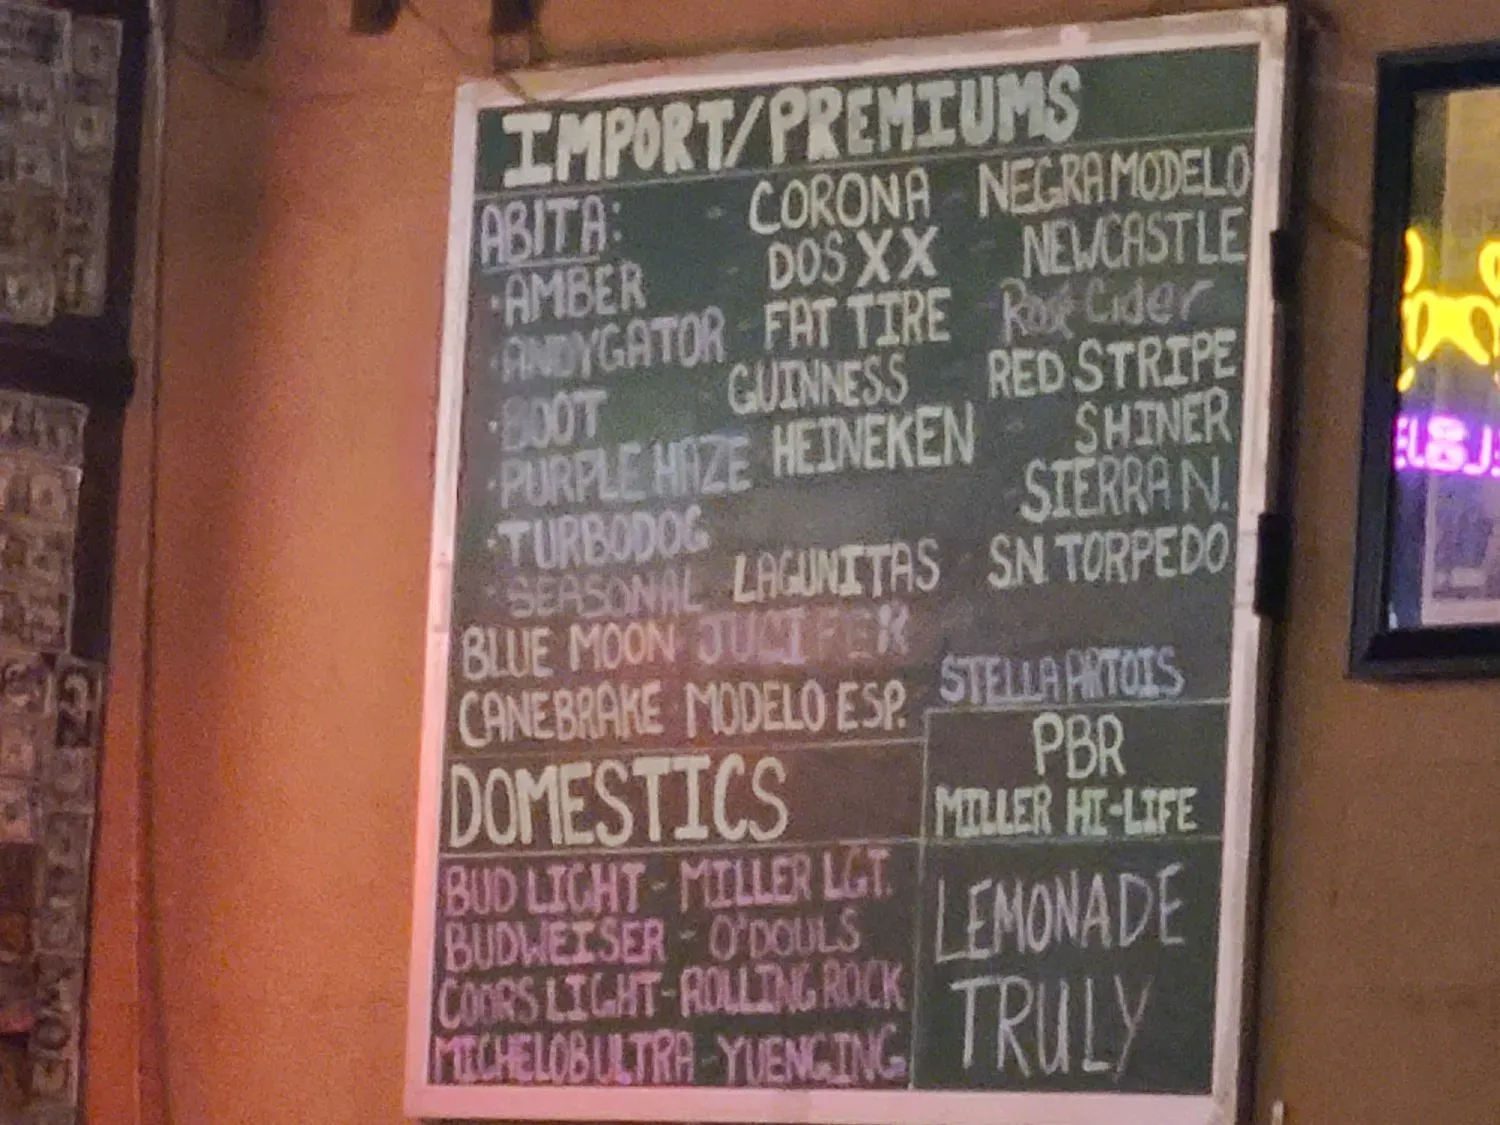 IMPORT/PREMIUMS
ABITA:
·AMBER
·ANDYGATOR
·BOOT
·PURPLE HAZE
·TURBODOG
·SEASONAL
BLUE MOON
CANEBRAKE
CORONA
DOS XX
FAT TIRE
GUINNESS
HEINEKEN
LAGUNITAS
JUCIFER
MODELO ESP.
NEGRA MODELO
NEWCASTLE
Cider
RED STRIPE
SHINER
SIERRA N.
S.N. TORPEDO
STELLA ARTOIS
DOMESTICS
BUD LIGHT - MILLER LGT.
BUDWEISER - O'DOULS
COORS LIGHT - ROLLING ROCK
MICHELOB ULTRA - YUENGING
PBR
MILLER HI-LIFE
LEMONADE
TRULY